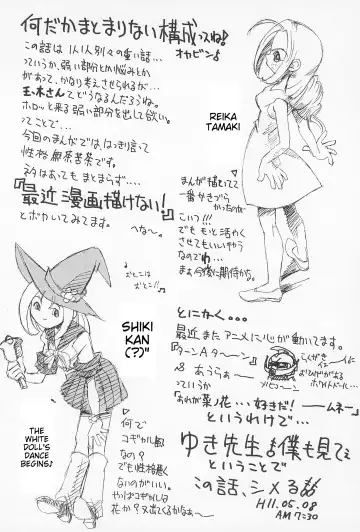 何だかまとまりない構成ってね♪
オカビン♪
この話は1人1人別々の重い話…
っていうか、弱い部分とか悩みとか
があって、かなり考えさせられるが…
玉木さんてどうなるんだろうね。
ホロッと来る弱い部分を出して欲しい。
ってことで…
今回のまんがでは、はっきし言って
性格無茶苦茶です。
ネタはあってもまとまらず…
『最近漫画描けない!』
とボカいてみてます。
へな〜。
REIKA
TAMAKI
まんが描いてて
一番かきづら
かったのが
こいつ!!!
でももっと活やく
させてもいいキャラ
なので
まあ今後に期待かな。
おとこは
おとこ!!
SHIKI
KAN
(?)"
THE
WHITE
DOLL'S
DANCE
BEGINS♪
何で
コギャル風
なの?
でも性格悪く
ないのがいい。
とにかく。。。
最近またアニメに心が動いてます。
『ターンAターン』
あうう〜
っていうか
『あれが菜ノ花…好きだ!──ムネー』
というわけで…
ゆき先生♪僕も見てえ
ということで
この話、シメる
H11.05.08
AM 7:30